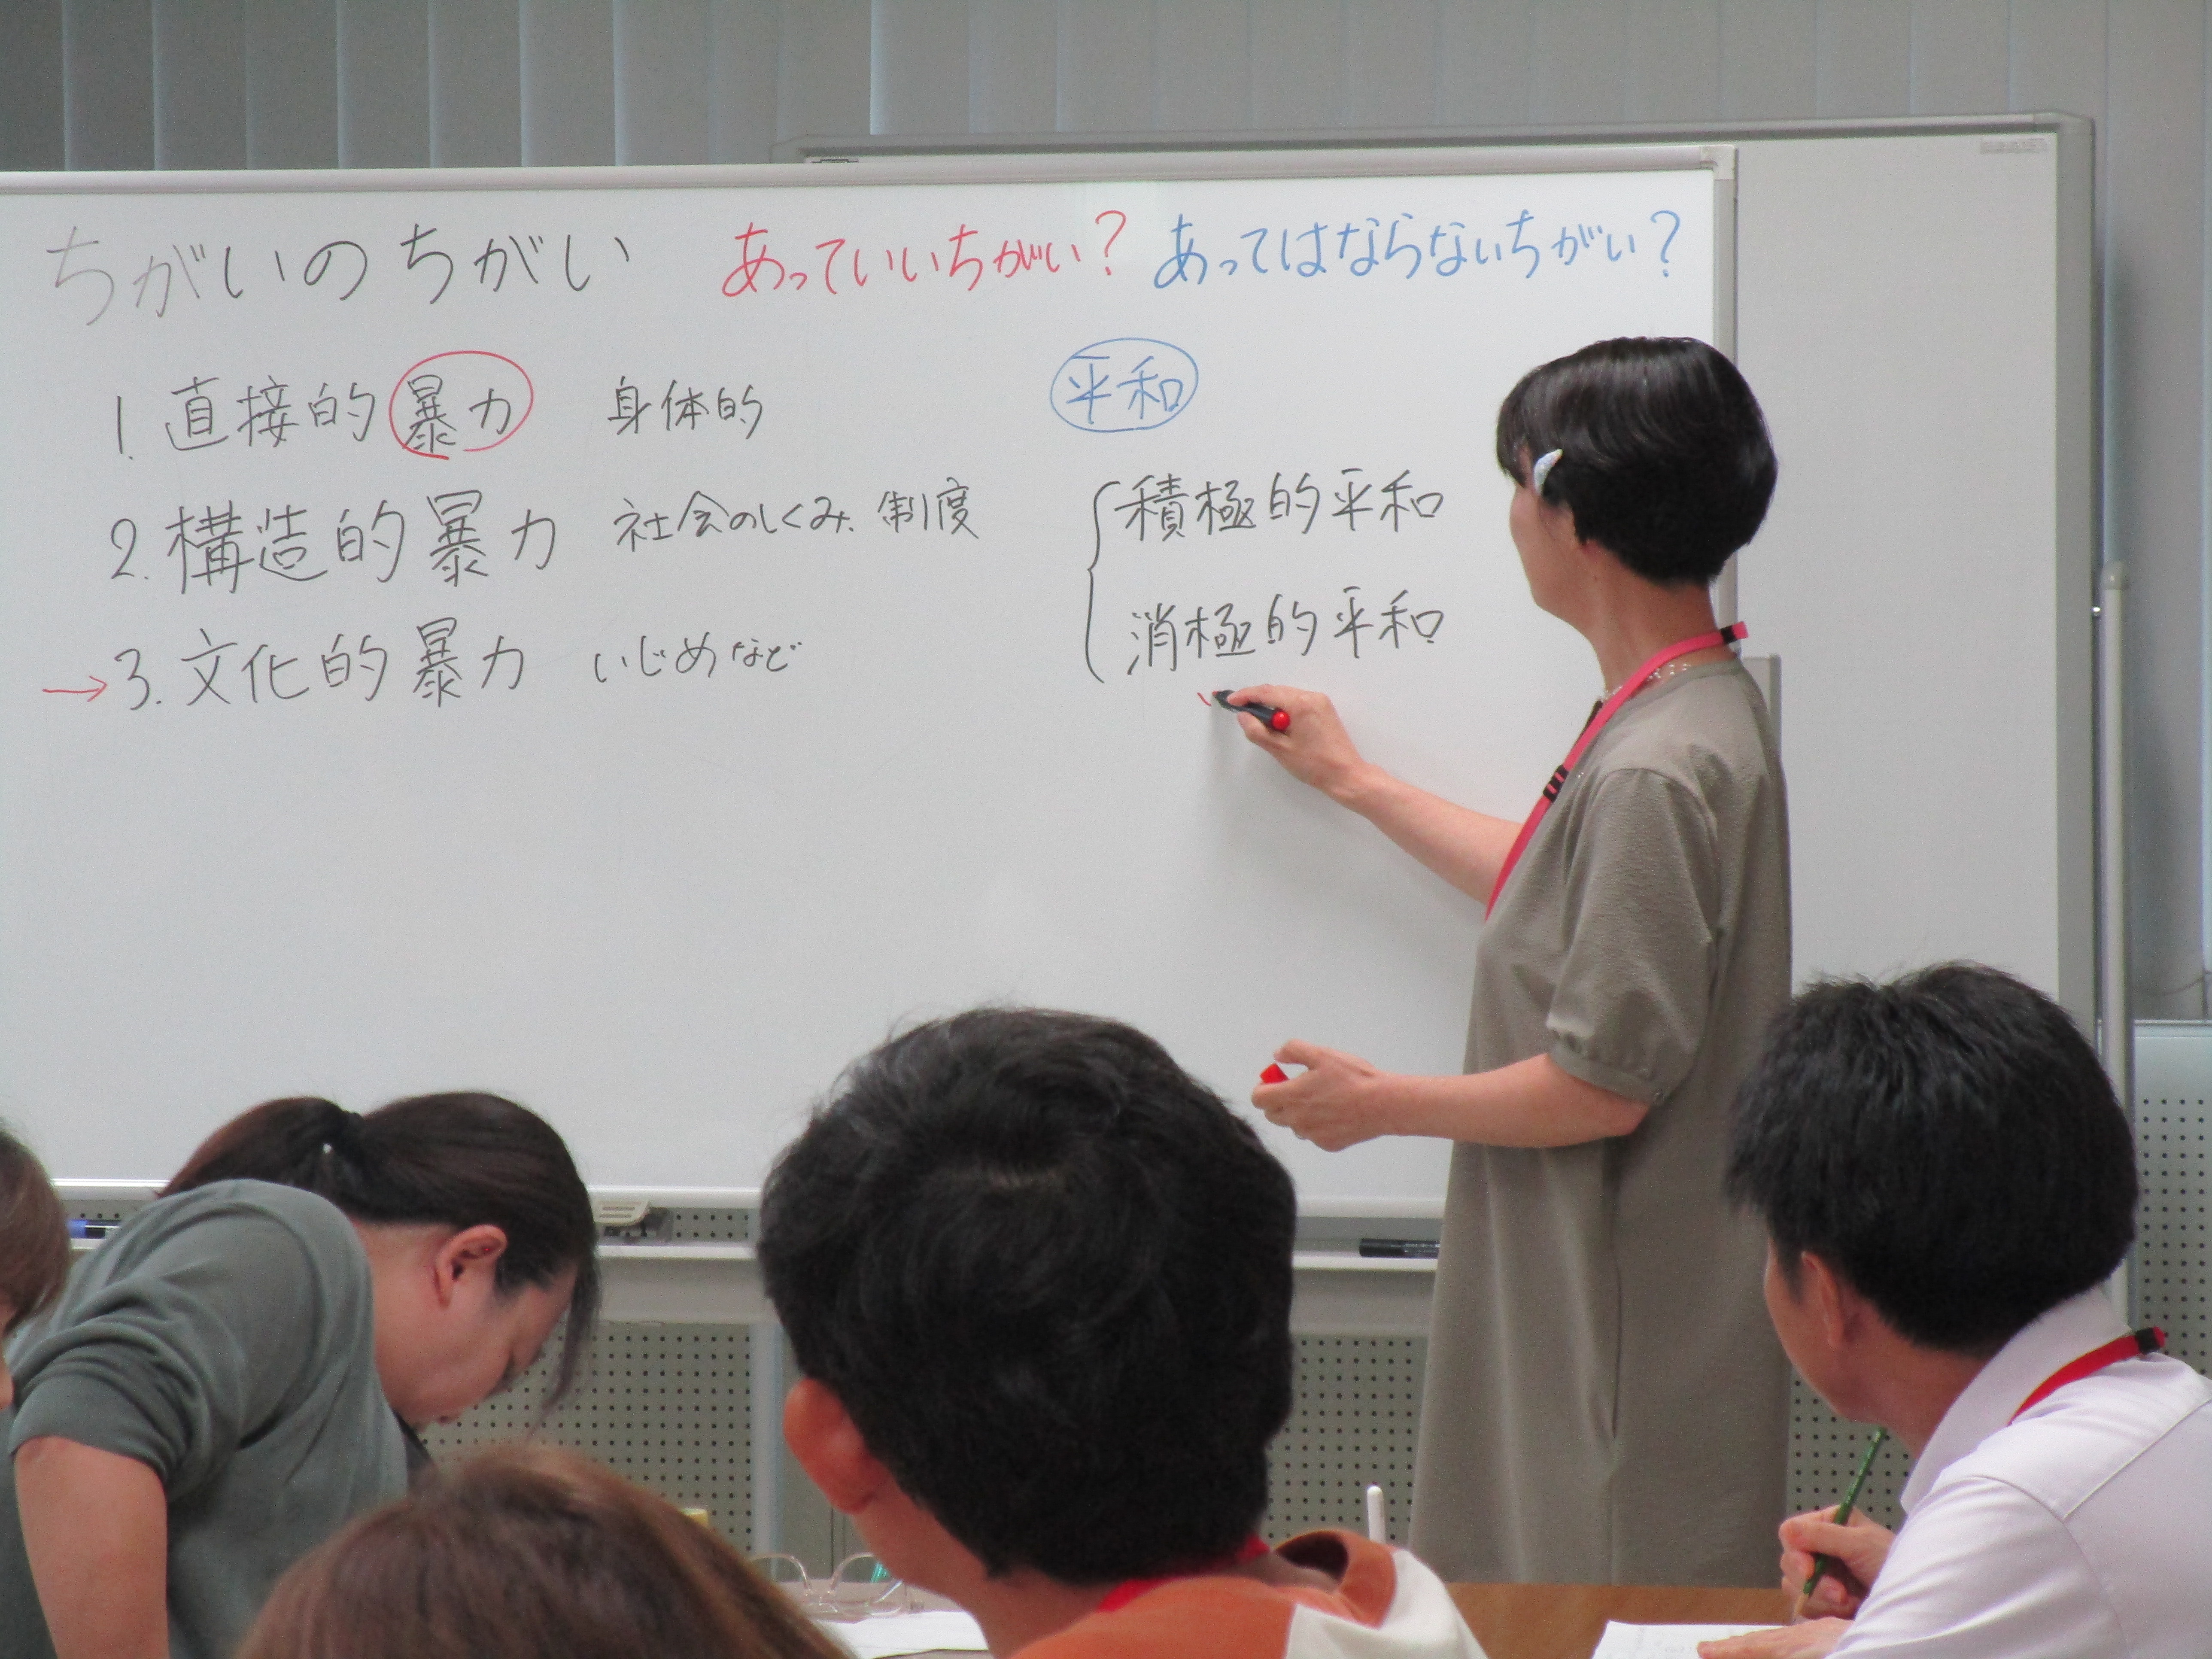 ちがいのちがい あっていいちがい? あってはならないちがい?
1. 直接的暴力 身体的
2. 構造的暴力 社会のしくみ、制度
→3. 文化的暴力 いじめなど
平和
積極的平和
消極的平和